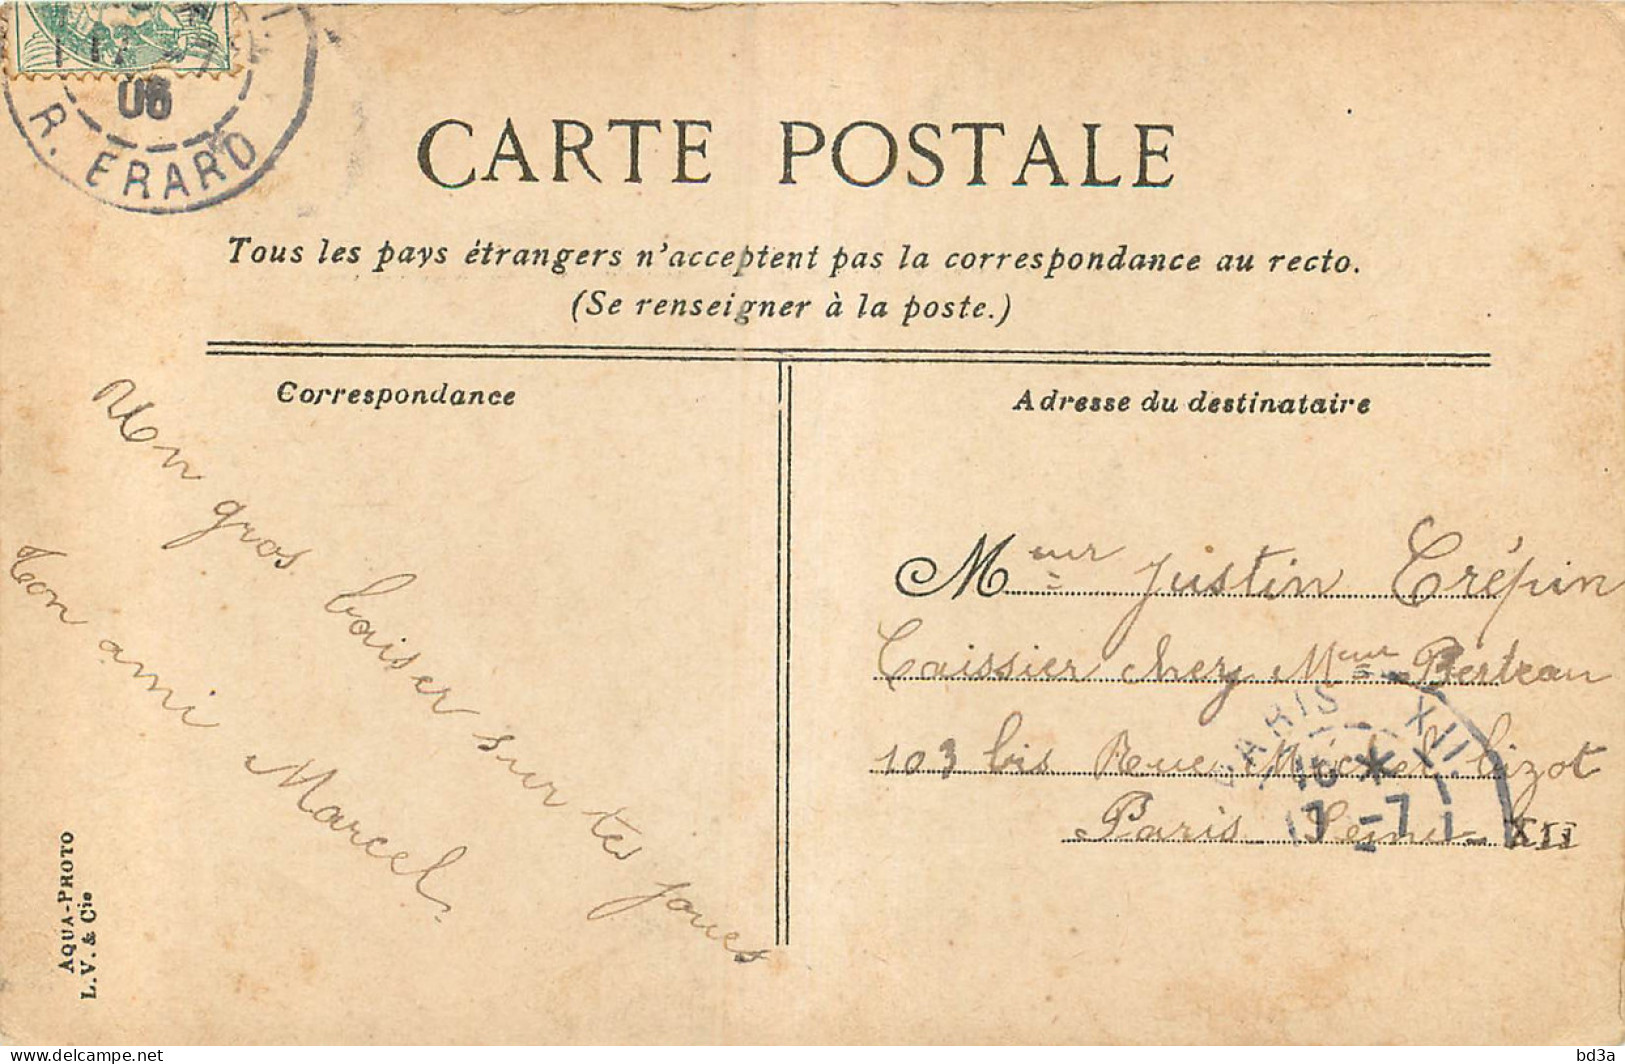 06
R. ERARD
CARTE POSTALE
Tous les pays étrangers n'acceptent pas la correspondance au recto.
(Se renseigner à la poste.)
Correspondance
Un gros baiser sur tes joues
Ton ami Marcel
AQUA-PHOTO
L.V. & Cie
Adresse du destinataire
Meur Justin Crépin
Caissier chez Mme Berteau
103 bis Rue Michel bizot
Paris Seine XII
PARIS XII
17-7
delcampe.net
bd3a